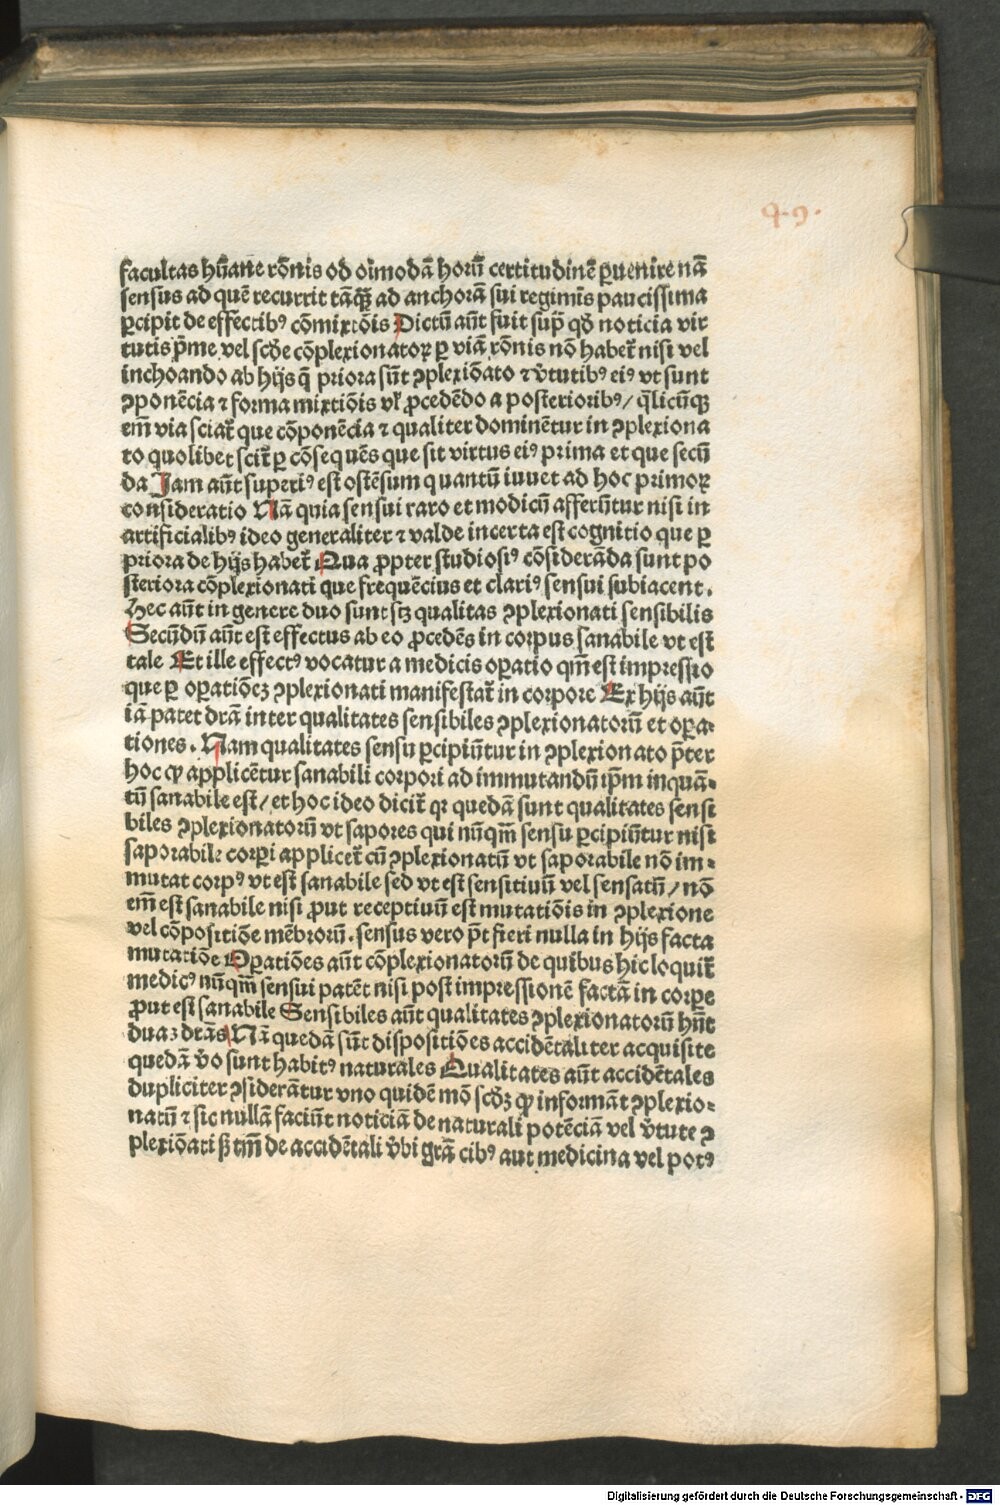 49.
facultas hūane rōnis od oīmodā horū certitudinē ꝑuenire nā
sensus ad quē recurrit tāꝙ̄ ad anchorā sui regimīs paucissima
ꝑcipit de effectibꝰ cōmixtōis Dictū aūt fuit sup̄ qđ noticia vir
tutis p̄me vel scđe cōplexionatoꝝ ꝑ viā rōnis nō habet̄ nisi vel
inchoando ab hijs q̄ priora sūt ꝯplexiōato ⁊ v̄tutibꝰ eiꝰ vt sunt
ꝯponēcia ⁊ forma mixtiōis vł ꝓcedēdo a posterioribꝰ / q̄licūqꝫ
em̄ via sciat̄ que cōponēcia ⁊ qualiter dominētur in ꝯplexiona
to quolibet scit̄ ꝑ cōsequēs que sit virtus eiꝰ prima et que secū
da Jam aūt superiꝰ est ostēsum quantū iuuet ad hoc primoꝝ
consideratio Nā quia sensui raro et modicū afferūtur nisi in
artificialibꝰ ideo generaliter ⁊ valde incerta est cognitio que ꝑ
priora de hijs habet̄ Qua ꝓpter studiosiꝰ cōsiderāda sunt po
steriora cōplexionati que frequēcius et clariꝰ sensui subiacent.
Hec aūt in genere duo sunt scꝫ qualitas ꝯplexionati sensibilis
Secūdū aūt est effectus ab eo ꝓcedēs in corpus sanabile vt est
tale Et ille effectꝰ vocatur a medicis oꝑatio qm̄ est impressio
que ꝑ oꝑatiōeꝫ ꝯplexionati manifestat̄ in corpore Ex hijs aūt
iā patet drā inter qualitates sensibiles ꝯplexionatorū et oꝑa-
tiones. Nam qualitates sensu ꝑcipiūtur in ꝯplexionato p̄ter
hoc ꝙ applicētur sanabili corpori ad immutandū ip̄m inquā-
tū sanabile est / et hoc ideo dicit̄ qꝛ quedā sunt qualitates sensi
biles ꝯplexionatorū vt sapores qui nūqm̄ sensu ꝑcipiūtur nisi
saporabile corꝑi applicet̄ cū ꝯplexionatū vt saporabile nō im-
mutat corpꝰ vt est sanabile sed vt est sensitiuū vel sensatū / nō
em̄ est sanabile nisi ꝓut receptiuū est mutatiōis in ꝯplexione
vel cōpositiōe mēbrorū. sensus vero p̄t fieri nulla in hijs facta
mutatiōe Oꝑatiōes aūt cōplexionatorū de quibus hic loquit̄
medicꝰ nūqm̄ sensui patēt nisi post impressionē factā in corꝑe
ꝓut est sanabile Sensibiles aūt qualitates ꝯplexionatorū hn̄t
duaꝫ drās Nā quedā sūt dispositiōes accidētaliter acquisite
quedā v̄o sunt habitꝰ naturales Qualitates aūt accidētales
dupliciter ꝯsiderātur vno quidē mō scđꝫ ꝙ informāt ꝯplexio-
natū ⁊ sic nullā faciūt noticiā de naturali potēciā vel v̄tute ꝯ
plexiōati ß tm̄ de accidētali v̄bi grā cibꝰ aut medicina vel potꝰ
Digitalisierung gefördert durch die Deutsche Forschungsgemeinschaft - DFG